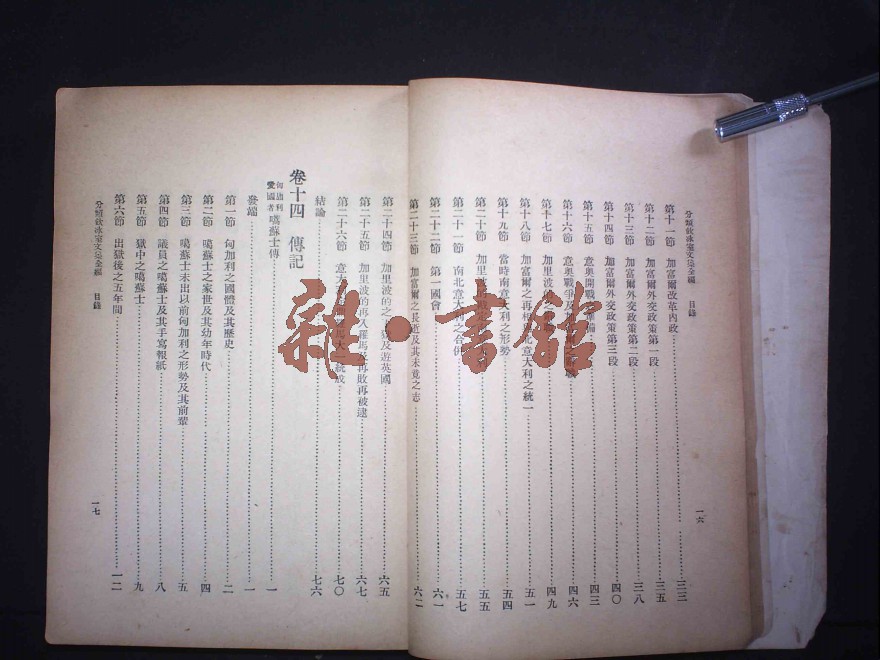 分類飲冰室文集全編 目錄
第十一節 加富爾改革內政 三三
第十二節 加富爾外交政策第一段 三五
第十三節 加富爾外交政策第二段 三八
第十四節 加富爾外交政策第三段 四〇
第十五節 意奧開戰準備 四三
第十六節 意奧戰爭及 四六
第十七節 加里波的 四九
第十八節 加富爾之再相 北意大利之統一 五一
第十九節 當時南意大利之形勢 五四
第二十節 加里波的 五五
第二十一節 南北意大利之合併 五七
第二十二節 第一國會 六一
第二十三節 加富爾之長逝及其未竟之志 六二
一六
第二十四節 加里波的之 及遊英國 六五
第二十五節 加里波的再入羅馬 再敗再被逮 六七
第二十六節 意大利 大 統成 七〇
結論 七六
卷十四 傳記
匈加利愛國者噶蘇士傳 一
發端 一
第一節 匈加利之國體及其歷史 二
第二節 噶蘇士之家世及其幼年時代 四
第三節 噶蘇士未出以前匈加利之形勢及其前輩 五
第四節 議員之噶蘇士及其手寫報紙 八
第五節 獄中之噶蘇士 九
第六節 出獄後之五年間 一二
分類飲冰室文集全編 目錄
一七
雜·書館